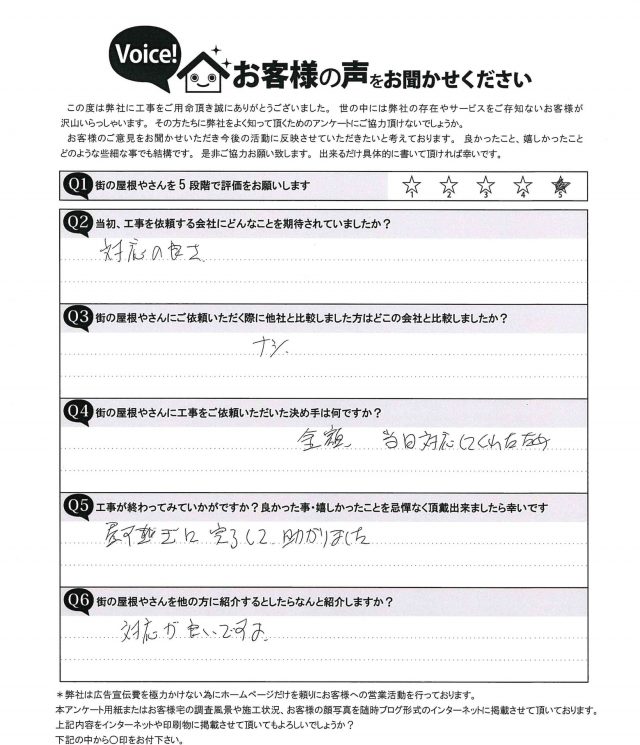 Voice!
お客様の声をお聞かせください
この度は弊社に工事をご用命頂き誠にありがとうございました。 世の中には弊社の存在やサービスをご存知ないお客様が
沢山いらっしゃいます。 その方たちに弊社をよく知って頂くためのアンケートにご協力頂けないでしょうか。
お客様のご意見をお聞かせいただき今後の活動に反映させていただきたいと考えております。 良かったこと、嬉しかったこと
どのような些細な事でも結構です。 是非ご協力お願い致します。 出来るだけ具体的に書いて頂ければ幸いです。
Q1 街の屋根やさんを5段階で評価をお願いします
1 2 3 4 5
Q2 当初、工事を依頼する会社にどんなことを期待されていましたか?
対応の良さ
Q3 街の屋根やさんにご依頼いただく際に他社と比較しました方はどこの会社と比較しましたか?
ナシ
Q4 街の屋根やさんに工事をご依頼いただいた決め手は何ですか?
金額 当日対応してくれたため
Q5 工事が終わってみていかがですか?良かった事・嬉しかったことを忌憚なく頂戴出来ましたら幸いです
に完了して助かりました
Q6 街の屋根やさんを他の方に紹介するとしたらなんと紹介しますか?
対応が良いですよ
*弊社は広告宣伝費を極力かけない為にホームページだけを頼りにお客様への営業活動を行っております。
本アンケート用紙またはお客様宅の調査風景や施工状況、お客様の顔写真を随時ブログ形式のインターネットに掲載させて頂いております。
上記内容をインターネットや印刷物に掲載させて頂いてもよろしいでしょうか?
下記の中から○印をお付下さい。